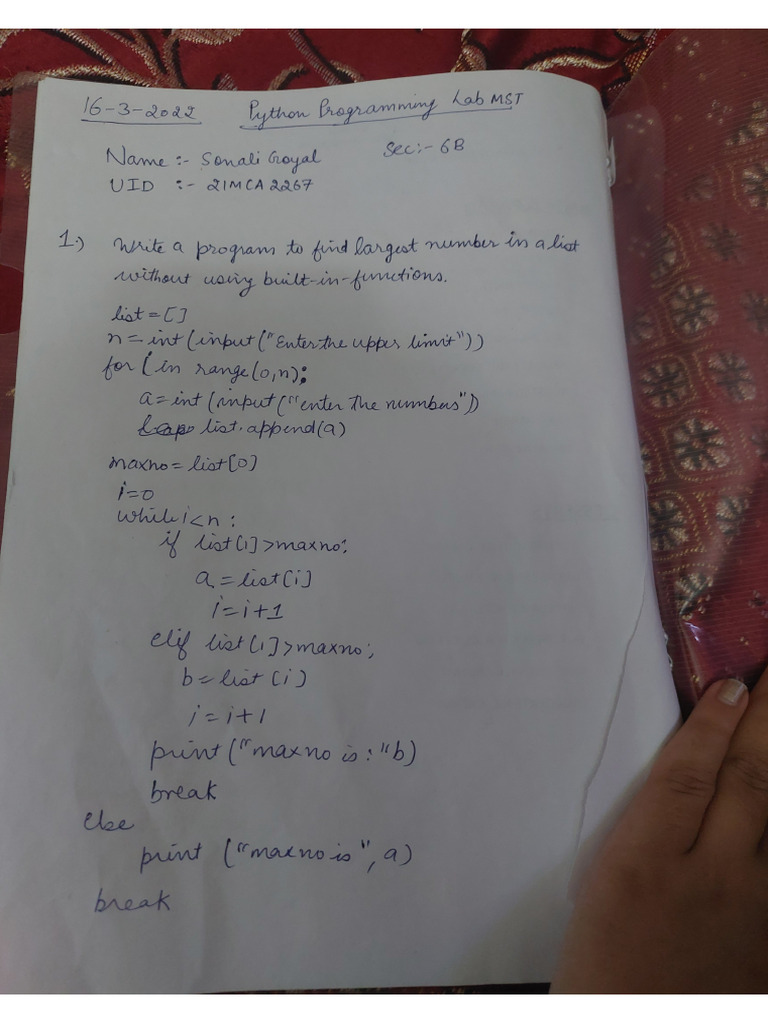 16-3-2022 Python Programming Lab MST
Name :- Sonali Goyal Sec:- 6B
UID :- 21MCA2267
1.) Write a program to find largest number in a list
without using built-in-functions.
list = []
n = int (input ("Enter the upper limit"))
for i in range(0,n):
a = int (input ("enter the numbers"))
list.append(a)
maxno = list[0]
i=0
while i<n :
if list[i]>maxno:
a = list[i]
i = i+1
elif list[i]>maxno;
b = list [i]
i = i+1
print ("maxno is : "b)
break
else
print ("maxno is", a)
break